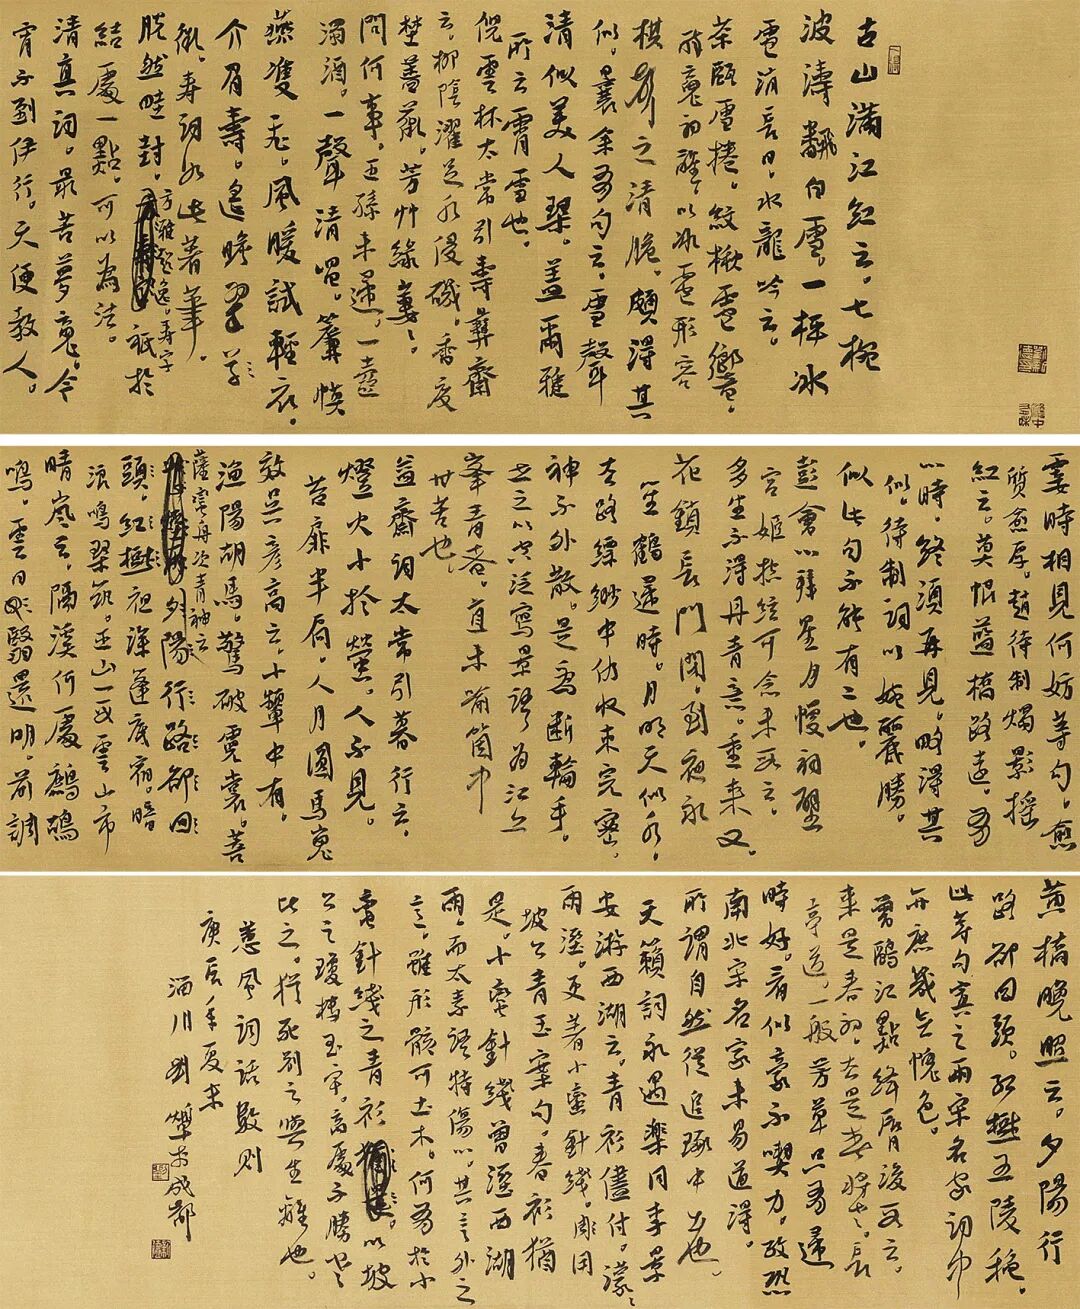 古山滿江紅云。七椀
波濤翻白雪。一枰冰
雹消長日。水龍吟云。
茶甌雪捲。紋楸雹響。
醉魂初醒。以冰雹形容
棋聲之清脆。頗得其
似。曩余有句云。雪聲
清似美人琴。蓋爾雅
所云霄雪也。
倪雲林太常引壽彝齋
云。柳陰濯足水侵磯。香度
埜薔薇。芳艸綠萋萋。
問何事。王孫未歸。一壺
濁酒。一聲清唱。簾幙
燕雙飛。風暖試輕衣。
介眉壽。遙瞻翠
微。壽詞如此著筆。
脫然畦封。方雅超逸。壽字祇於
結處一點。可以為法。
清真詞。最苦夢魂。今
宵不到伊行。天便教人。
霎時相見何妨等句。愈
質愈厚。趙待制燭影搖
紅云。莫恨藍橋路遠。有
心時。終須再見。略得其
似。待制詞以婉麗勝。
似此句不能有二也。
彭會心拜星月慢詞壁
宮姬撚弦可念末段云。
多生不得丹青意。重來又。
花鎖長門閉。到夜永
笙鶴歸時。月明天似水。
去路縹緲中仍收束完密。
神不外散。是爲斲輪手。
出之以空泛寫景語為江上
峯青者。直未喻箇中
甘苦也。
益齋詞太常引暮行云。
燈火小於螢。人不見。
苔扉半扃。人月圓馬嵬
效吳彥高云。小顰中有。
漁陽胡馬。驚破霓裳。菩
薩蠻舟次青神云。夕陽行路卻回
頭。紅樹夜深篷底宿。暗
浪鳴琴筑。巫山一段雲山市
晴嵐云。隔溪何處鷓鴣
鳴。雲日翳還明。前調
黃橋晚照云。夕陽行
路卻回頭。紅樹五陵秋。
此等句寘之兩宋名家詞中
亦庶幾無愧色。
曾鷗江點絳唇後段云。
來是春初。去是春將老。長
亭道。一般芳草只有歸
時好。看似毫不喫力。政恐
南北宋名家未易道得。
所謂自然從追琢中出也。
天籟詞永遇樂同李景
安游西湖云。青衫儘付。濛濛
雨溼。更著小蠻針綫。用
坡公青玉案句。春衫猶
是。小蠻針綫曾溼西湖
雨。而太素語特傷心。其言外之
意。雖形骸可土木。何有於小
蠻針綫之青衫。以坡
公之瓊樓玉宇。高處不勝寒
比之。猶死別之與生離也。
蕙風詞話數則
庚辰年夏末
酒川劉燁书成都